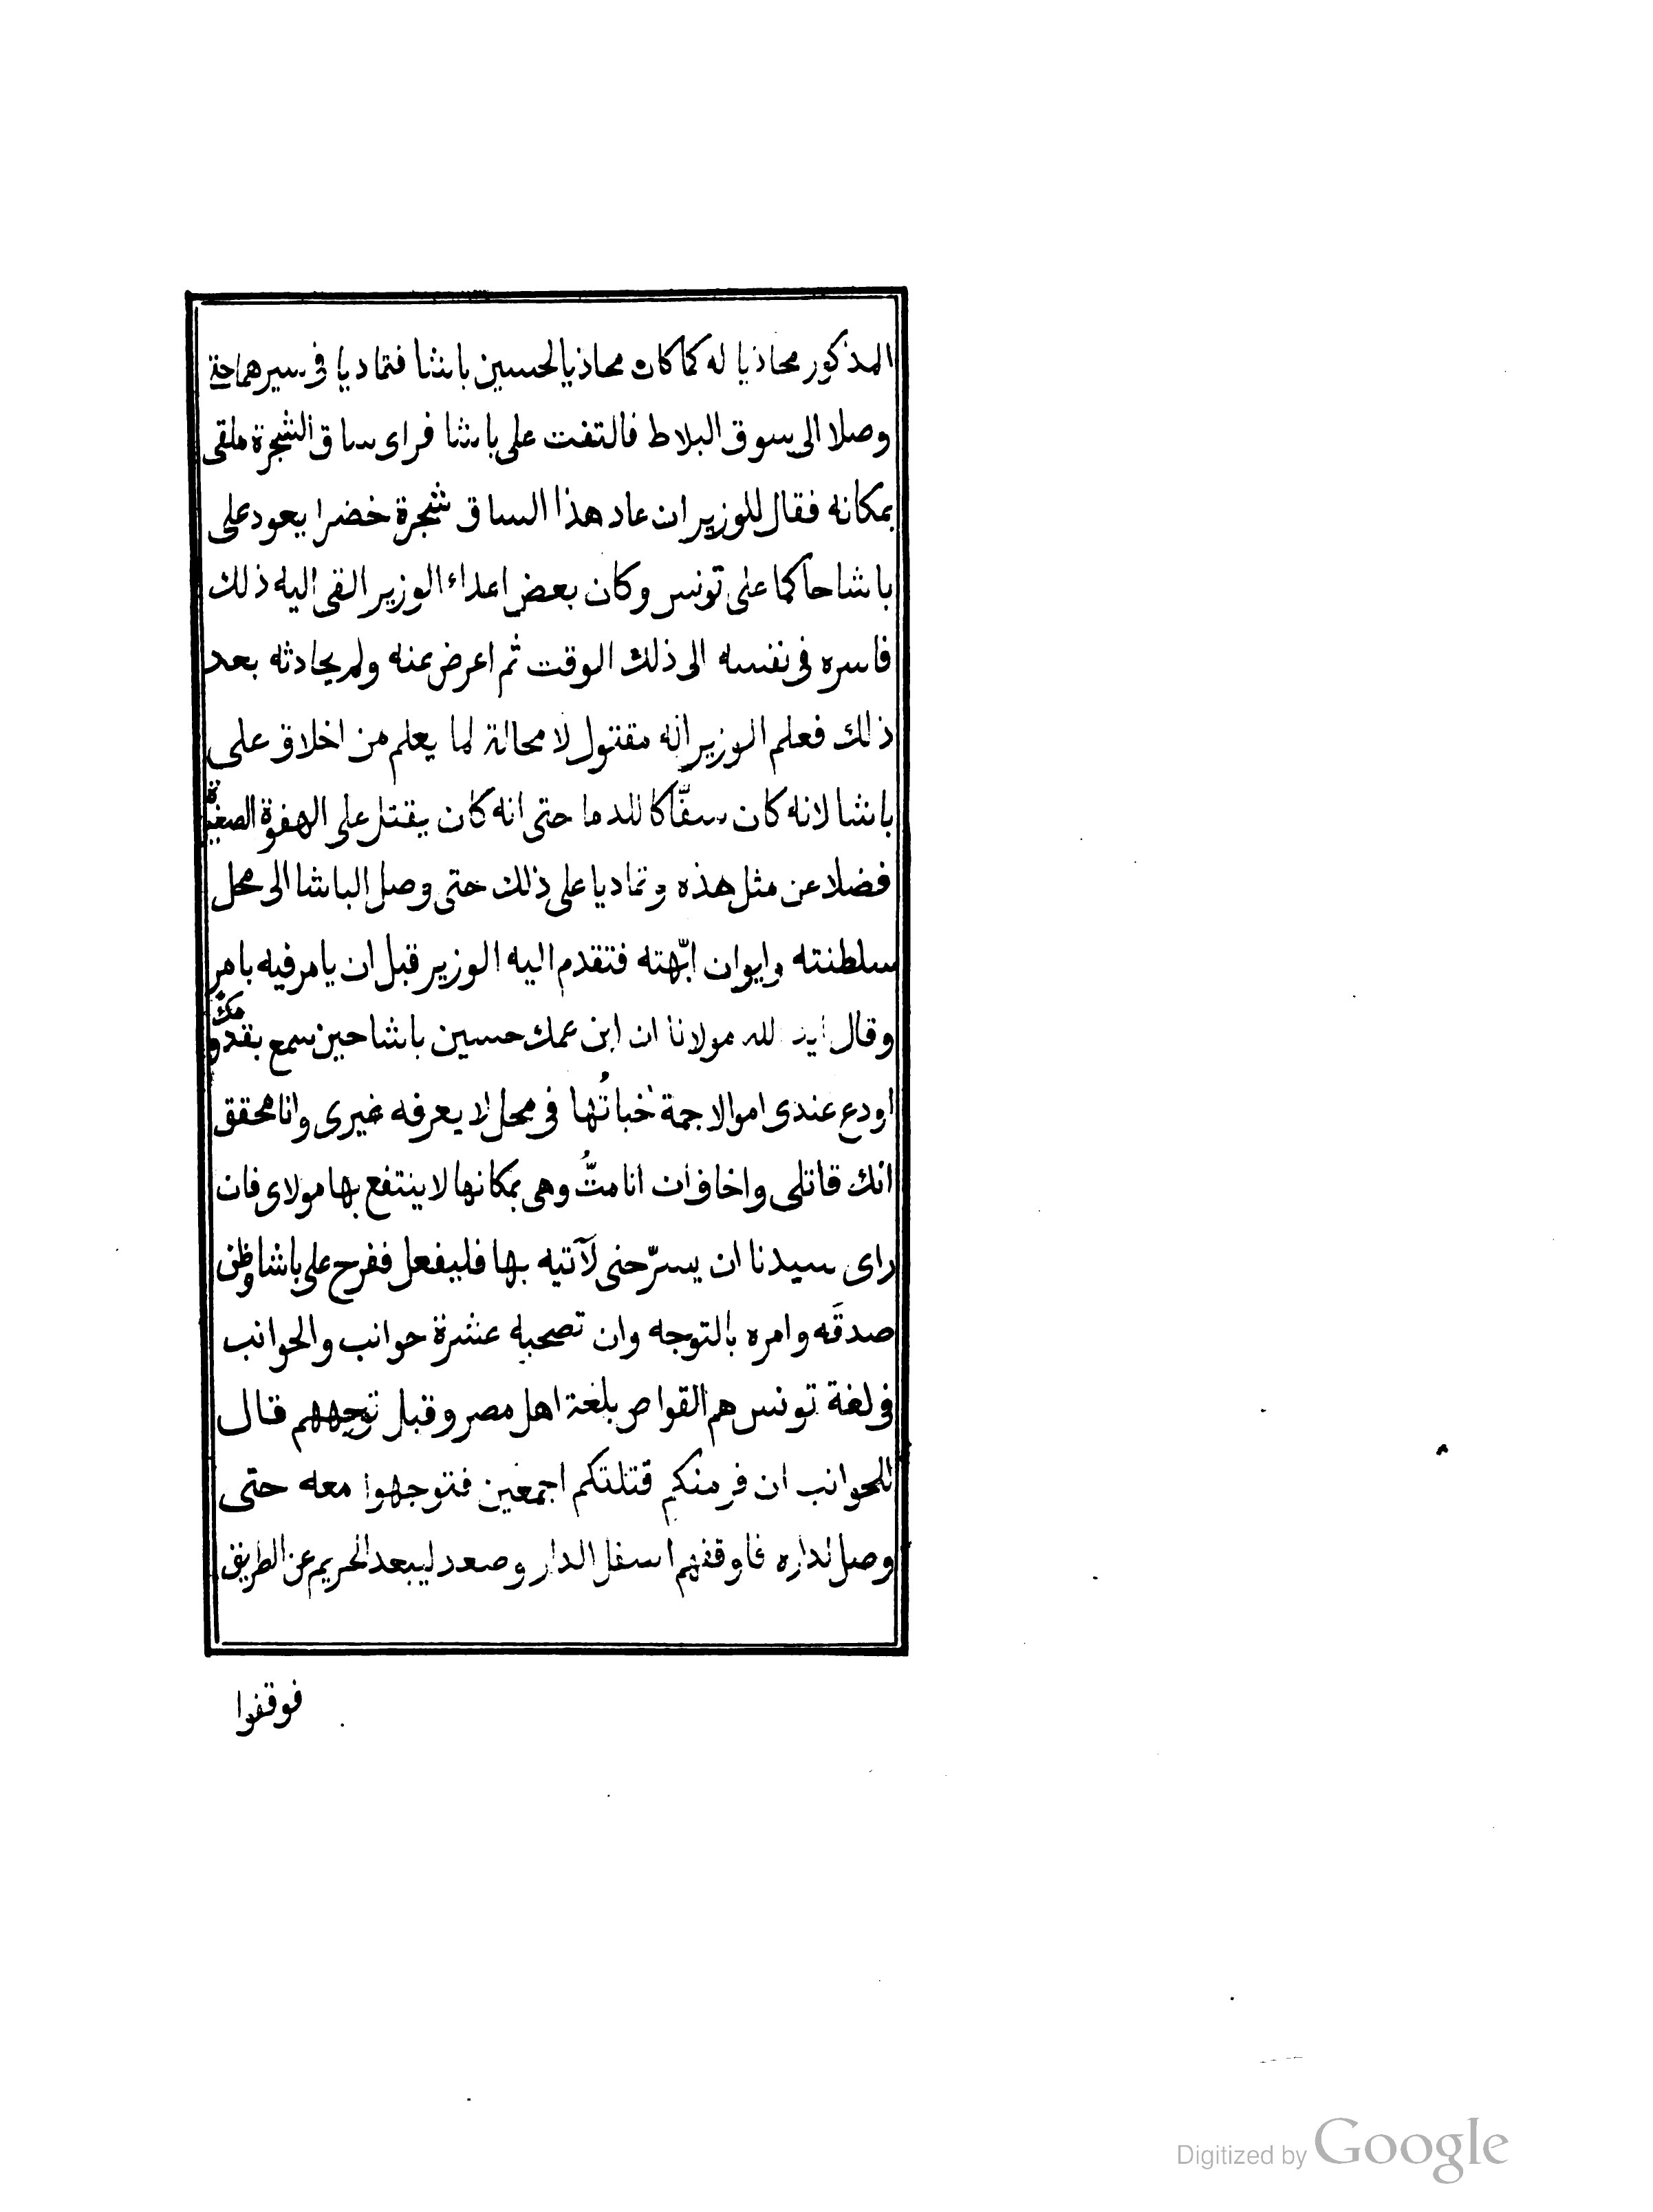 المذكور محاذيا له كما كان محاذيا لحسين باشا فتماديا فى سيرهما حتى
وصلا الى سوق البلاط فالتفت على باشا فراى ساق الشجرة ملقى
بمكانه فقال للوزير ان عاد هذا الساق شجرة خضرا يعود على
باشا حاكما على تونس وكان بعض اعداء الوزير القى اليه ذلك
فاسره فى نفسه الى ذلك الوقت ثم اعرض عنه ولم يحادثه بعد
ذلك فعلم الوزير انه مقتول لا محالة لما يعلم من اخلاق على
باشا لانه كان سفّاكا للدما حتى انه كان يقتل على الهفوة الصغيرة
فضلا عن مثل هذه وتماديا على ذلك حتى وصل الباشا الى محل
سلطنته وايوان ابّهته فتقدم اليه الوزير قبل ان يامر فيه بامر
وقال ايد الله مولانا ان ابن عمك حسين باشا حين سمع بقدومك
اودع عندى اموالا جمة خباتُها فى محل لا يعرفه غيرى وانا محقق
انك قاتلى واخاف ان انا متُّ وهى بمكانها لا ينتفع بها مولاى فان
راى سيدنا ان يسرّحنى لآتيه بها فليفعل ففرح على باشا وظن
صدقَه وامره بالتوجه وان تصحبه عشرة حوانب والحوانب
فى لغة تونس هم القواص بلغة اهل مصر وقبل توجههم قال
للحوانب ان فر منكم قتلتكم اجمعين فتوجهوا معه حتى
وصل لداره فاوقفهم اسفل الدار وصعد ليبعد الحريم عن الطريق
فوقفوا
Digitized by Google